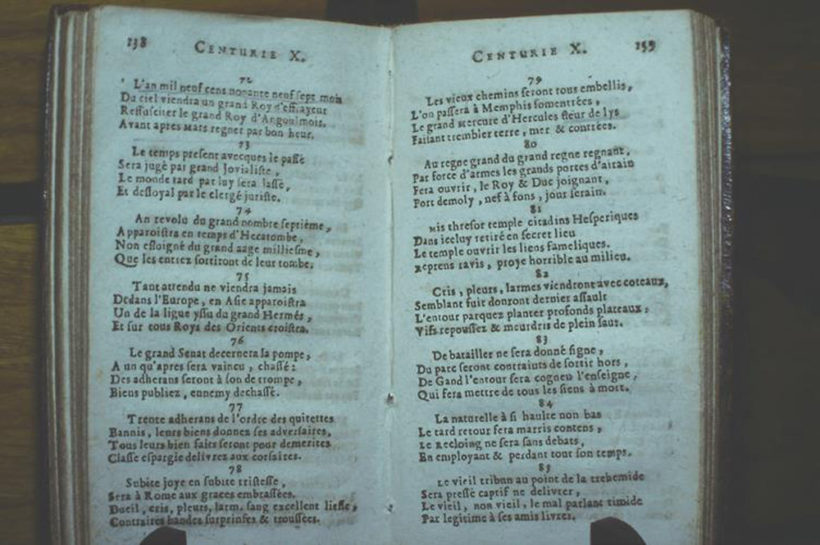 138
CENTURIE X.
72
L'an mil neuf cens nonante neuf sept mois
Du ciel viendra un grand Roy d'effrayeur
Ressusciter le grand Roy d'Angoulmois.
Avant apres Mars regner par bon heur.
73
Le temps present avecques le passé
Sera jugé par grand Jovialiste,
Le monde tard par luy sera lassé,
Et desloyal par le clergé juriste.
74
An revolu du grand nombre septième,
Apparoistra en temps d'Hecatombe,
Non esloigné du grand aage milliesme,
Que les entrez sortiront de leur tombe.
75
Tant attendu ne viendra jamais
Dedans l'Europe, en Asie apparoistra
Un de la ligue yssu du grand Hermés,
Et sur tous Roys des Orients croistra.
76
Le grand Senat decernera la pompe,
A un qu'apres sera vaincu, chassé:
Des adherans seront à son de trompe,
Biens publiez, ennemy dechassé.
77
Trente adherans de l'ordre des quirettes
Bannis, leurs biens donnez ses adversaires,
Tous leurs bien faits seront pour demerites
Classe espargie delivrez aux corsaires.
78
Subite joye en subite tristesse,
Sera à Rome aux graces embrassées.
Dueil, cris, pleurs, larm. sang excellent liesse,
Contraires bandes surprinses & troussées.
CENTURIE X.
159
79
Les vieux chemins seront tous embellis,
L'on passera à Memphis somentrées,
Le grand Mercure d'Hercules fleur de lys
Faisant trembler terre, mer & contrées.
80
Au regne grand du grand regne regnant,
Par force d'armes les grands portes d'airain
Fera ouvrir, le Roy & Duc joignant,
Port demoly, nef à fons, jour serain.
81
Mis thresor temple citadins Hesperiques
Dans iceluy retiré en secret lieu
Le temple ouvrir les liens fameliques.
Reprens ravis, proye horrible au milieu.
82
Cris, pleurs, larmes viendront avec coteaux,
Semblant fuit donront dernier assault
L'entour parquez planter profonds plateaux,
Vifs repoussez & meurdris de plein saut.
83
De batailler ne sera donné signe,
Du parc seront contraints de sortir hors,
De Gand l'entour sera cogneu l'enseigne,
Qui fera mettre de tous les siens à mort.
84
La naturelle à si haulte non bas
Le tard retour fera marris contens,
Le Recloing ne sera sans debats,
En employant & perdant tout son temps.
85
Le vieil tribun au point de la trehemide
Sera pressé captif ne delivrer,
Le vieil, non vieil, le mal parlant timide
Par legitime à ses amis livrer.